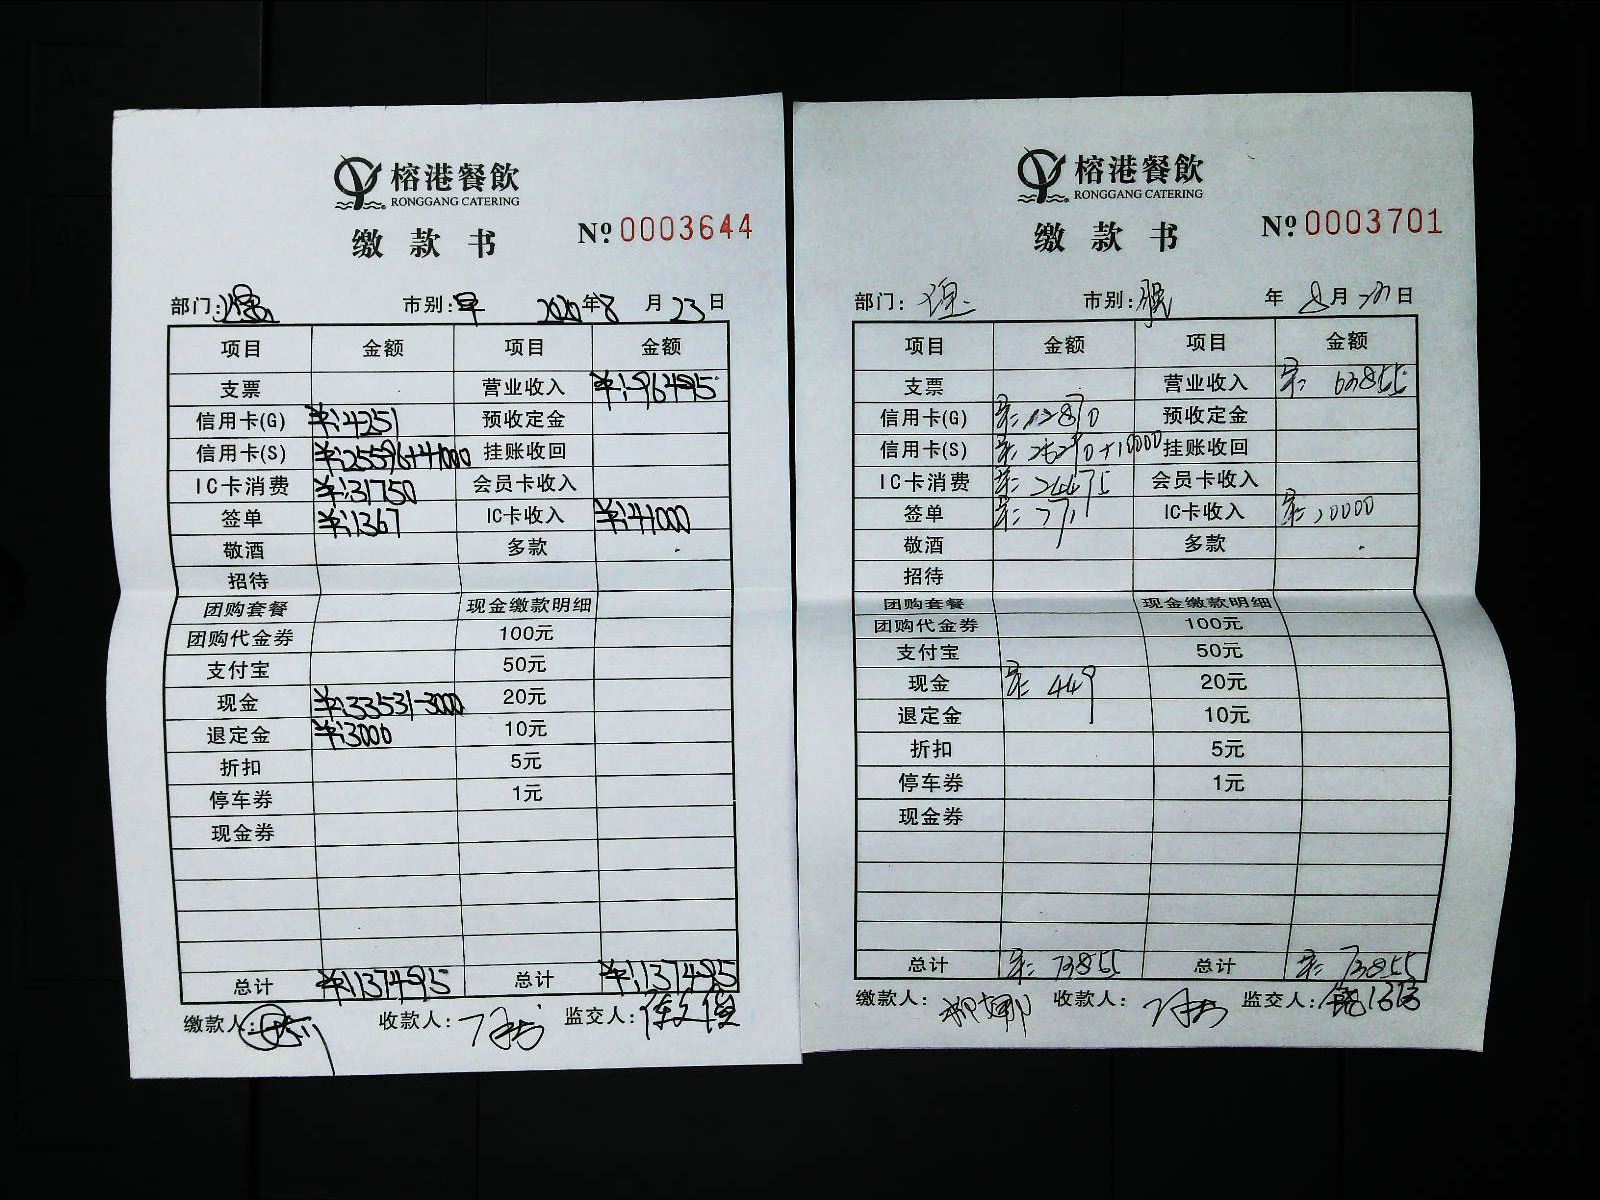 榕港餐飲
RONGGANG CATERING
缴款书 Nº 0003644
部门: 市别:早 2020年8月23日
项目 金额 项目 金额
支票 营业收入 ¥:96495
信用卡(G) ¥:4251 预收定金
信用卡(S) ¥:25596+41000 挂账收回
IC卡消费 ¥:31750 会员卡收入
签单 ¥:1367 IC卡收入 ¥:41000
敬酒 多款
招待
团购套餐 现金缴款明细
团购代金券 100元
支付宝 50元
现金 ¥:33531-3000 20元
退定金 ¥:3000 10元
折扣 5元
停车券 1元
现金券
总计 ¥:137495 总计 ¥:137495
缴款人: 收款人: 监交人:
榕港餐飲
RONGGANG CATERING
缴款书 Nº 0003701
部门: 市别:晚 年8月23日
项目 金额 项目 金额
支票 营业收入 ¥:63855
信用卡(G) ¥:12870 预收定金
信用卡(S) ¥:25290+10000 挂账收回
IC卡消费 ¥:24475 会员卡收入
签单 ¥:771 IC卡收入 ¥:10000
敬酒 多款
招待
团购套餐 现金缴款明细
团购代金券 100元
支付宝 50元
现金 ¥:449 20元
退定金 10元
折扣 5元
停车券 1元
现金券
总计 ¥:73855 总计 ¥:73855
缴款人: 收款人: 监交人: